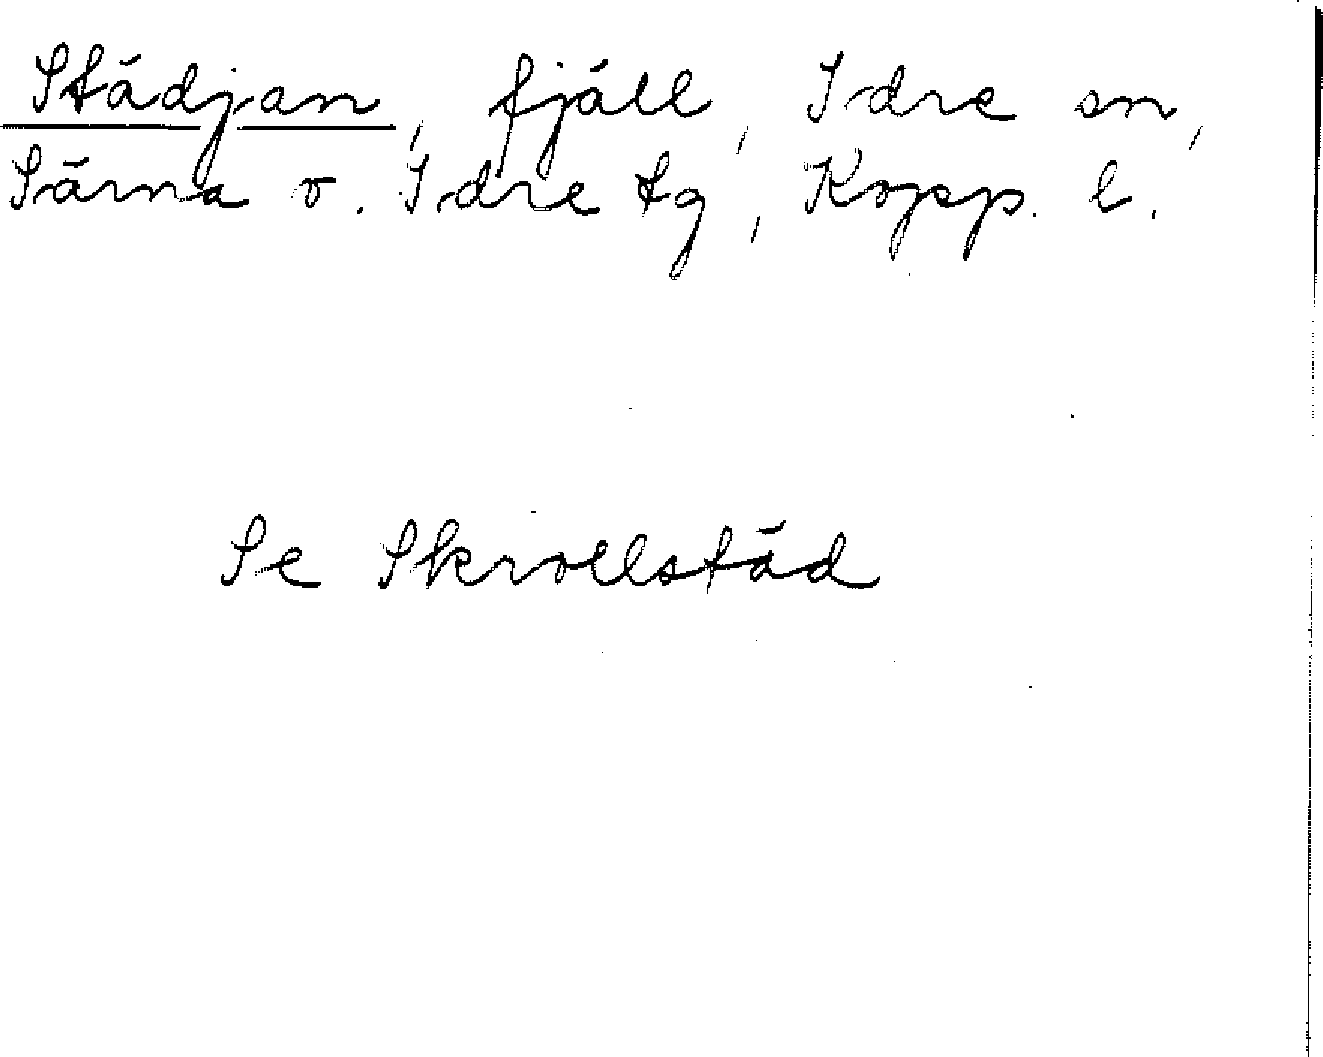 Städjan, fjäll, Idre sn,
Särna o. Idre tg, Kopp. l.
Se Skrollstäd